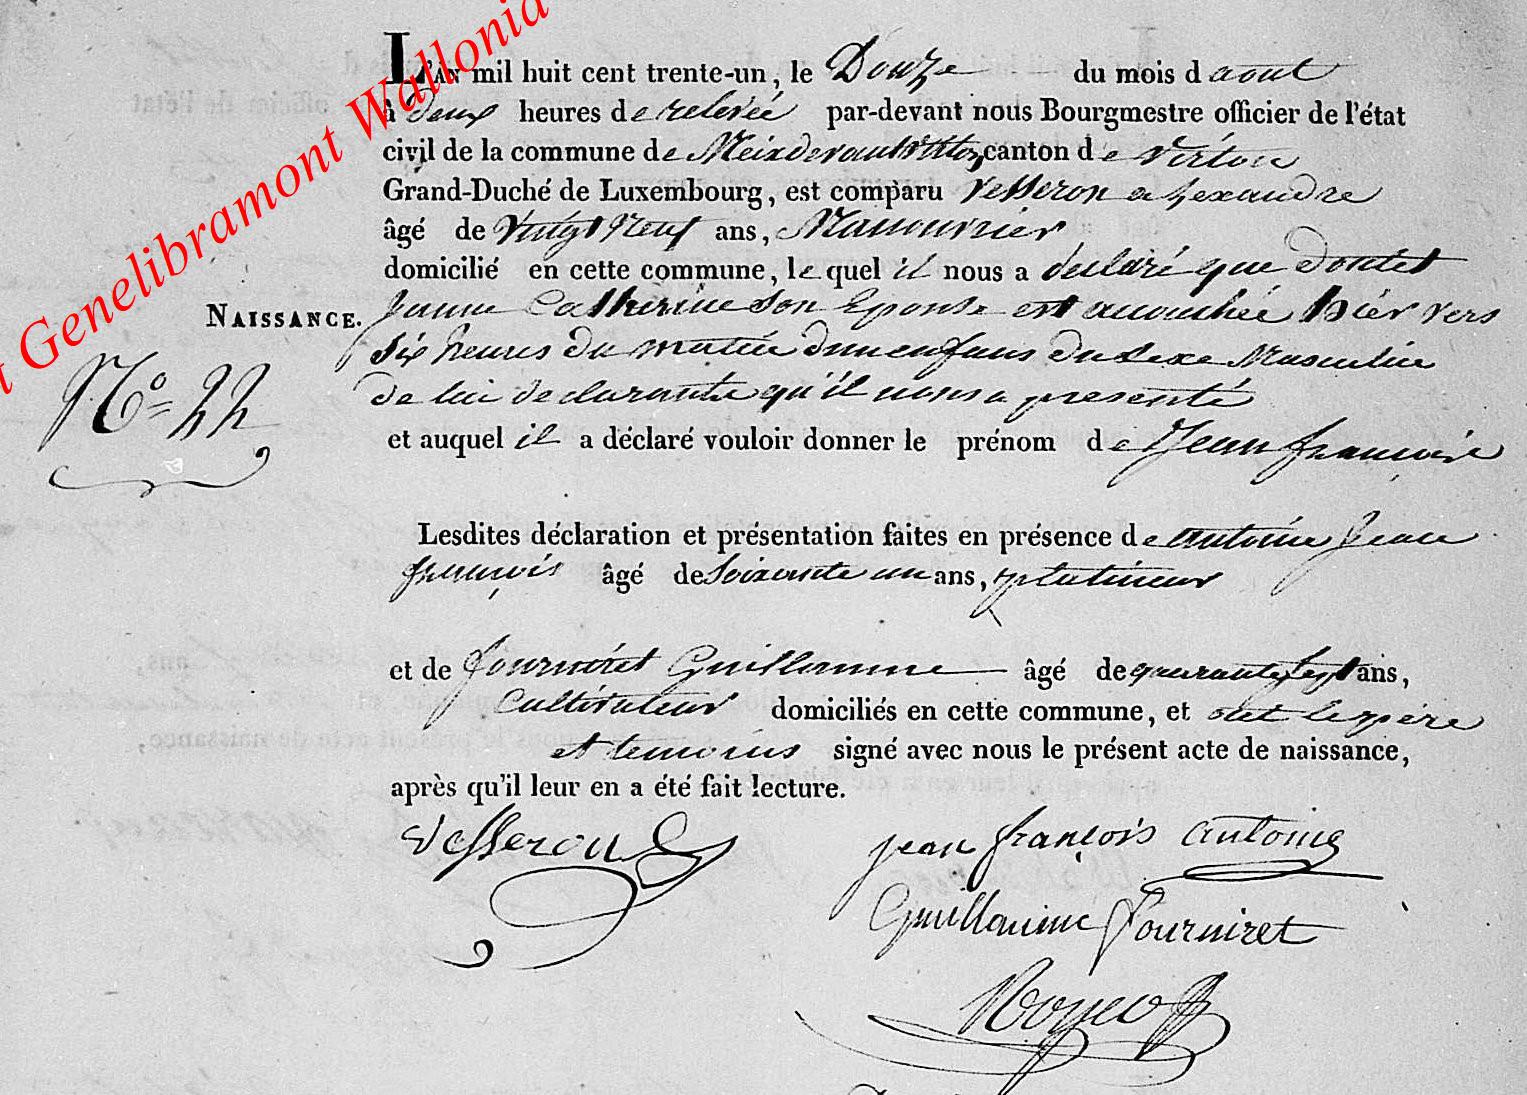 Genelibramont Wallonia
L'AN mil huit cent trente-un, le Douze du mois d aout
à deux heures de relevée par-devant nous Bourgmestre officier de l'état
civil de la commune de Meixdevantvirton canton de virton
Grand-Duché de Luxembourg, est comparu Vesseron alexandre
âgé de Vingt Neuf ans, Manouvrier
domicilié en cette commune, le quel il nous a declaré que Doutet
NAISSANCE.
Jeanne Catherine Son Epouse est accouchée hier vers
Six heures du matin d'un enfans du Sexe Masculin
N.o 22
de lui declarante qu'il nous a presenté
et auquel il a déclaré vouloir donner le prénom de Jean françois
Lesdites déclaration et présentation faites en présence de antoine Jean
françois âgé de Soixante un ans,
et de fourniret Guillaume âgé de quarante Sept ans,
Cultivateur domiciliés en cette commune, et ont le père
et temoins signé avec nous le présent acte de naissance,
après qu'il leur en a été fait lecture.
Vesseron
jean françois antoine
Guillaume fourniret